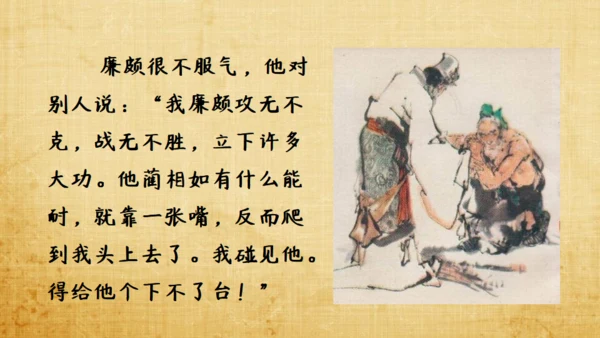 廉颇很不服气，他对
别人说：“我廉颇攻无不
克，战无不胜，立下许多
大功。他蔺相如有什么能
耐，就靠一张嘴，反而爬
到我头上去了。我碰见他。
得给他个下不了台！”